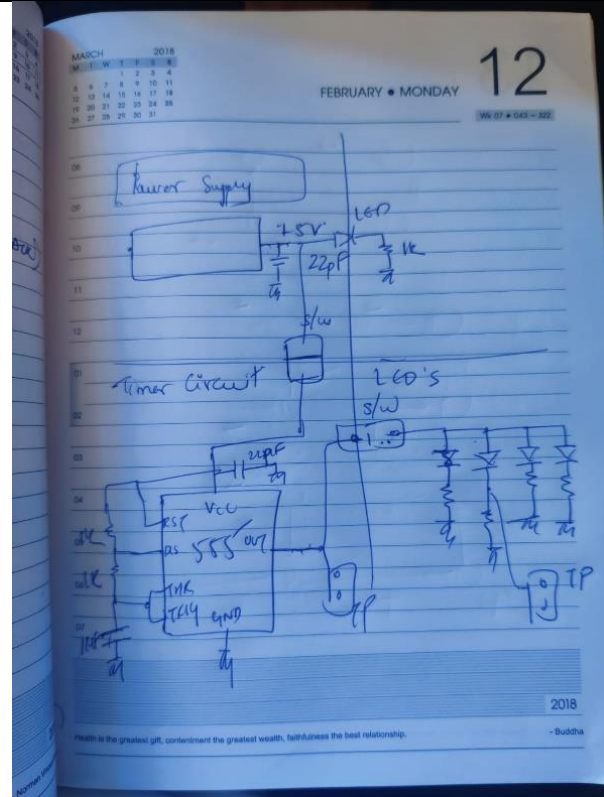 MARCH 2018
M T W T F S S
1 2 3 4
5 6 7 8 9 10 11
12 13 14 15 16 17 18
19 20 21 22 23 24 25
26 27 28 29 30 31
FEBRUARY • MONDAY
12
Wk 07 • 043 – 322
08
Power Supply
09
LED
+5V
10
1K
22pF
11
S/W
12
01
Timer Circuit
LED'S
S/W
02
03
04
VCC
RST
555
OUT
05
1K
06
THR
TP
GND
07
TP
2018
Health is the greatest gift, contentment the greatest wealth, faithfulness the best relationship.
- Buddha